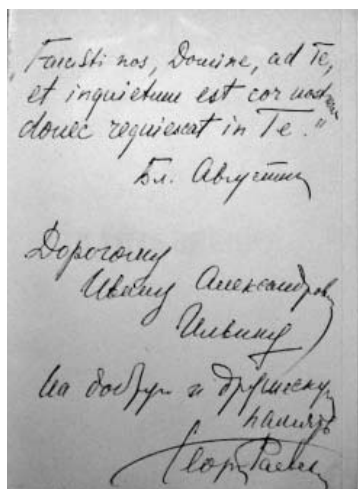 „Fecisti nos, Domine, ad Te,
et inquietum est cor nostrum
donec requiescat in Te."
Бл. Августин
Дорогому
Ивану Александров
Ильину
На добрую и дружескую
память
Георг